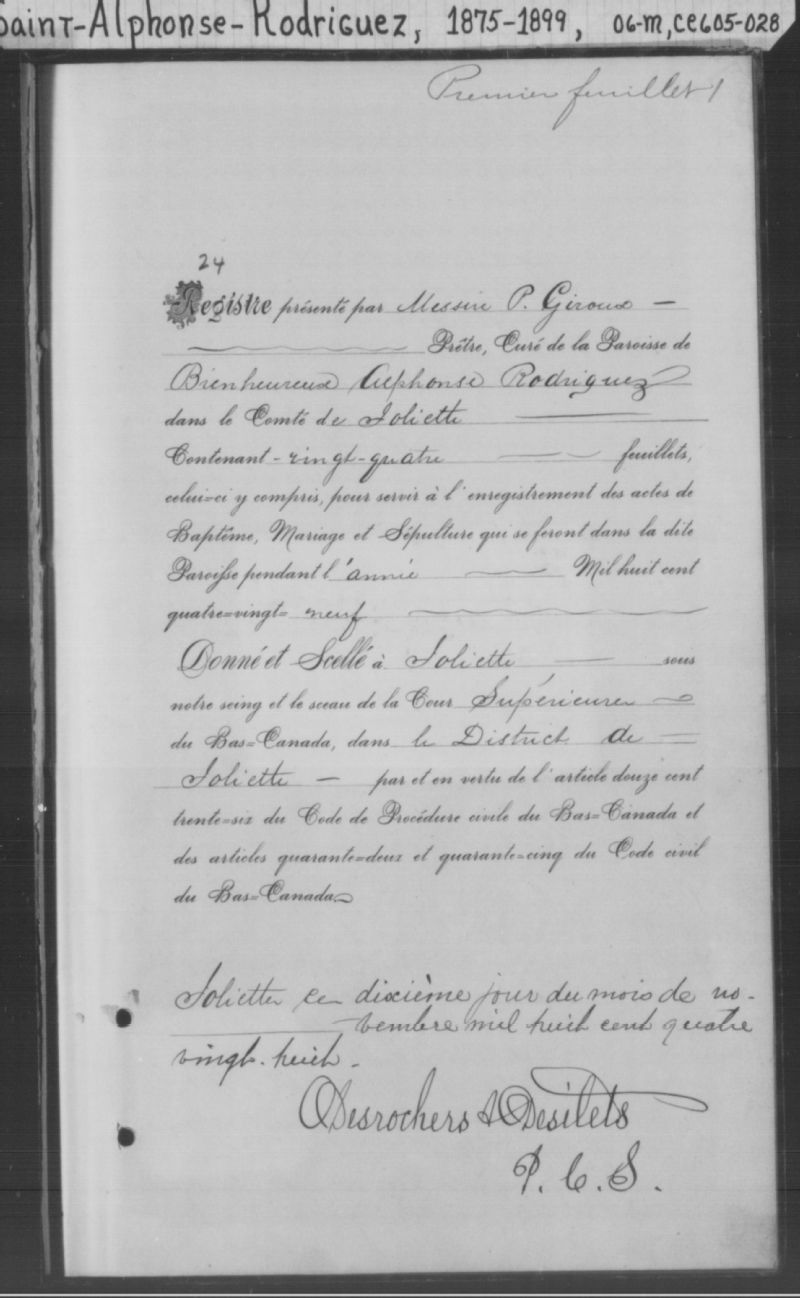 Saint-Alphonse-Rodriguez, 1875-1899, 06-M, CE605-028
Premier feuillet 1
24
Registre présenté par Messire P. Giroux —
Prêtre, Curé de la Paroisse de
Bienheureux Alphonse Rodriguez
dans le Comté de Joliette
Contenant - vingt-quatre feuillets,
celui=ci y compris, pour servir à l'enregistrement des actes de
Baptême, Mariage et Sépulture qui se feront dans la dite
Paroisse pendant l'année Mil huit cent
quatre=vingt= neuf
Donné et Scellé à Joliette sous
notre seing et le sceau de la Cour Supérieure
du Bas=Canada, dans le District de
Joliette — par et en vertu de l'article douze cent
trente=six du Code de Procédure civile du Bas=Canada et
des articles quarante=deux et quarante=cinq du Code civil
du Bas=Canada
Joliette ce dixième jour du mois de no-
vembre mil huit cent quatre
vingt-huit -
Desrochers & Desilets
P. C. S.